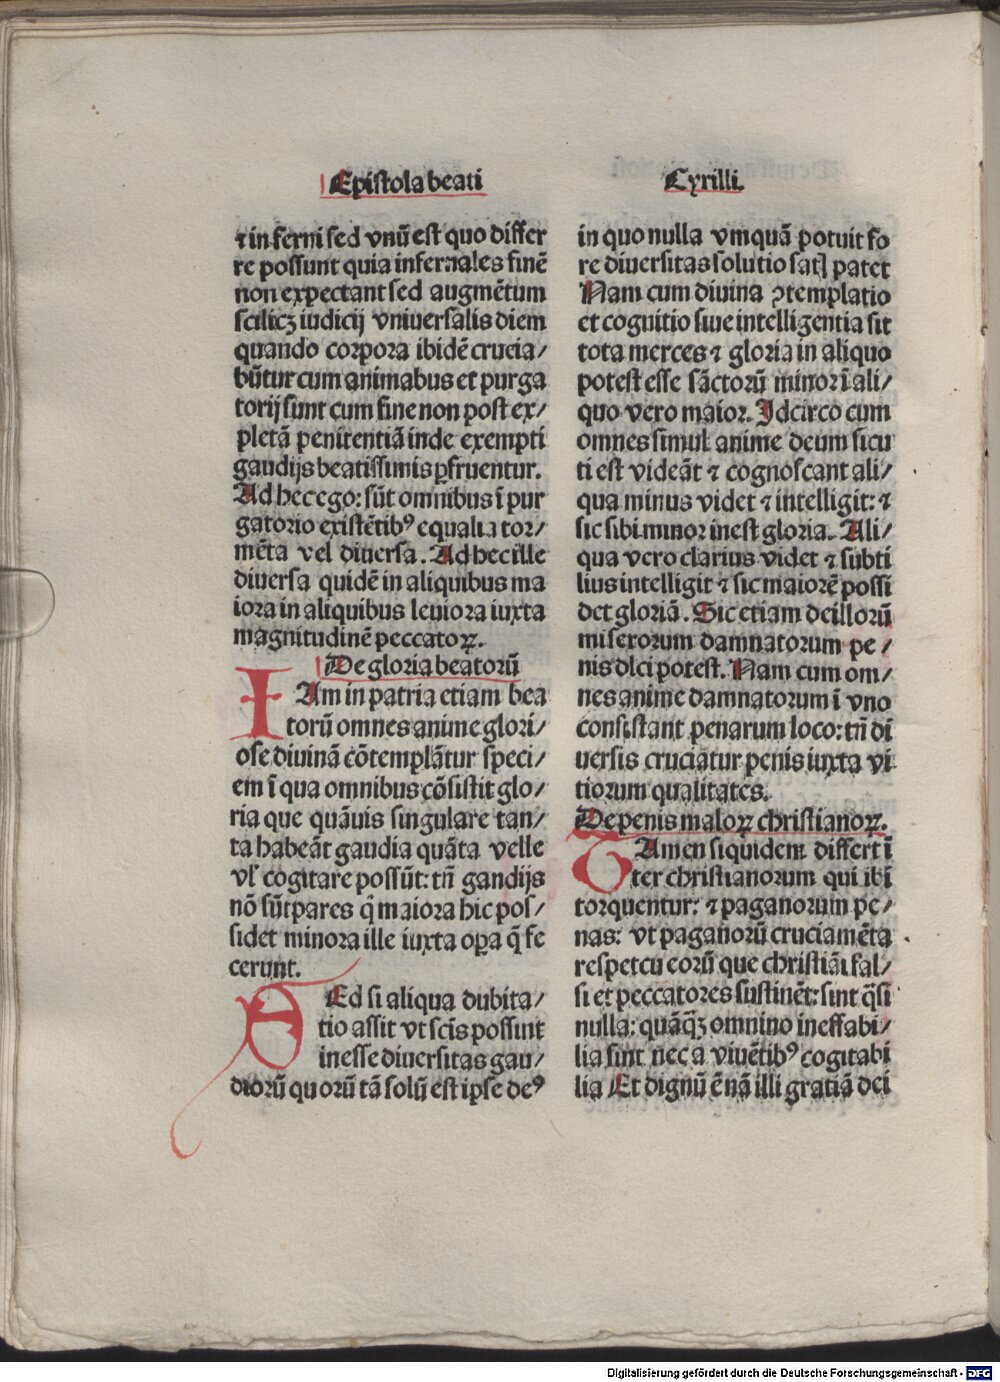 Epistola beati
⁊ in ferni sed vnū est quo differ
re possunt quia infernales finē
non expectant sed augmētum
scilicꝫ iudicij vniuersalis diem
quando corpora ibidē crucia/
būtur cum animabus et purga
torij sunt cum fine non post ex/
pletā penitentiā inde exempti
gaudijs beatissimis ꝑfruentur.
Ad hec ego: sūt omnibus ī pur
gatorio existētibꝰ equalia tor/
mēta vel diuersa. Ad hec ille
diuersa quidē in aliquibus ma
iora in aliquibus leuiora iuxta
magnitudinē peccatoꝝ.
De gloria beatorū
IAm in patria etiam bea
torū omnes anime glori/
ose diuinā cōtemplātur speci/
em ī qua omnibus cōsistit glo/
ria que quāuis singulare tan/
ta habeāt gaudia quāta velle
vl' cogitare possūt: tn̄ gandijs
nō sūt pares q̄ maiora hic pos/
sidet minora ille iuxta oꝑa q̄ fe
cerunt.
SEd si aliqua dubita/
tio assit vt scis possunt
inesse diuersitas gau/
diorū quorū tā solū est ipse deꝰ
Cyrilli.
in quo nulla vmquā potuit fo
re diuersitas solutio satꝭ patet
Nam cum diuina ꝯtemplatio
et cognitio siue intelligentia sit
tota merces ⁊ gloria in aliquo
potest esse sāctorū minor ī ali/
quo vero maior. Idcirco cum
omnes simul anime deum sicu
ti est videāt ⁊ cognoscant ali/
qua minus videt ⁊ intelligit: ⁊
sic sibi minor inest gloria. Ali/
qua vero clarius videt ⁊ subti
lius intelligit ⁊ sic maiorē possi
det gloriā. Sic etiam de illorū
miserorum damnatorum pe/
nis dici potest. Nam cum om/
nes anime damnatorum ī vno
consistant penarum loco: tn̄ di
uersis cruciātur penis iuxta vi
tiorum qualitates.
De penis maloꝝ christianoꝝ.
TAmen siquidem differt ī
ter christianorum qui ibi
torquentur: ⁊ paganorum pe/
nas: vt paganorū cruciamēta
respetcu eorū que christiāi fal/
si et peccatores sustinēt: sint q̄si
nulla: quāꝙꝫ omnino ineffabi/
lia sint nec a viuētibꝰ cogitabi
lia Et dignū ē nā illi gratiā dei
Digitalisierung gefördert durch die Deutsche Forschungsgemeinschaft - DFG